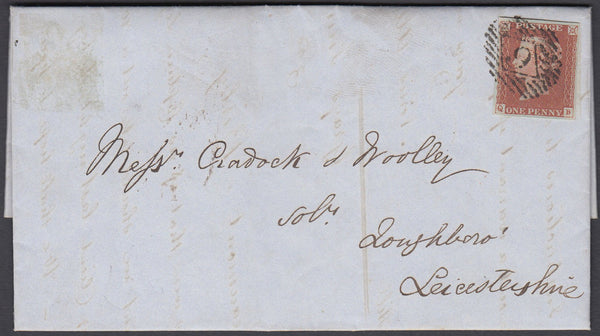 POSTAGE
ONE PENNY
Messrs Cradock & Woolley
Solrs
Loughboro'
Leicestershire